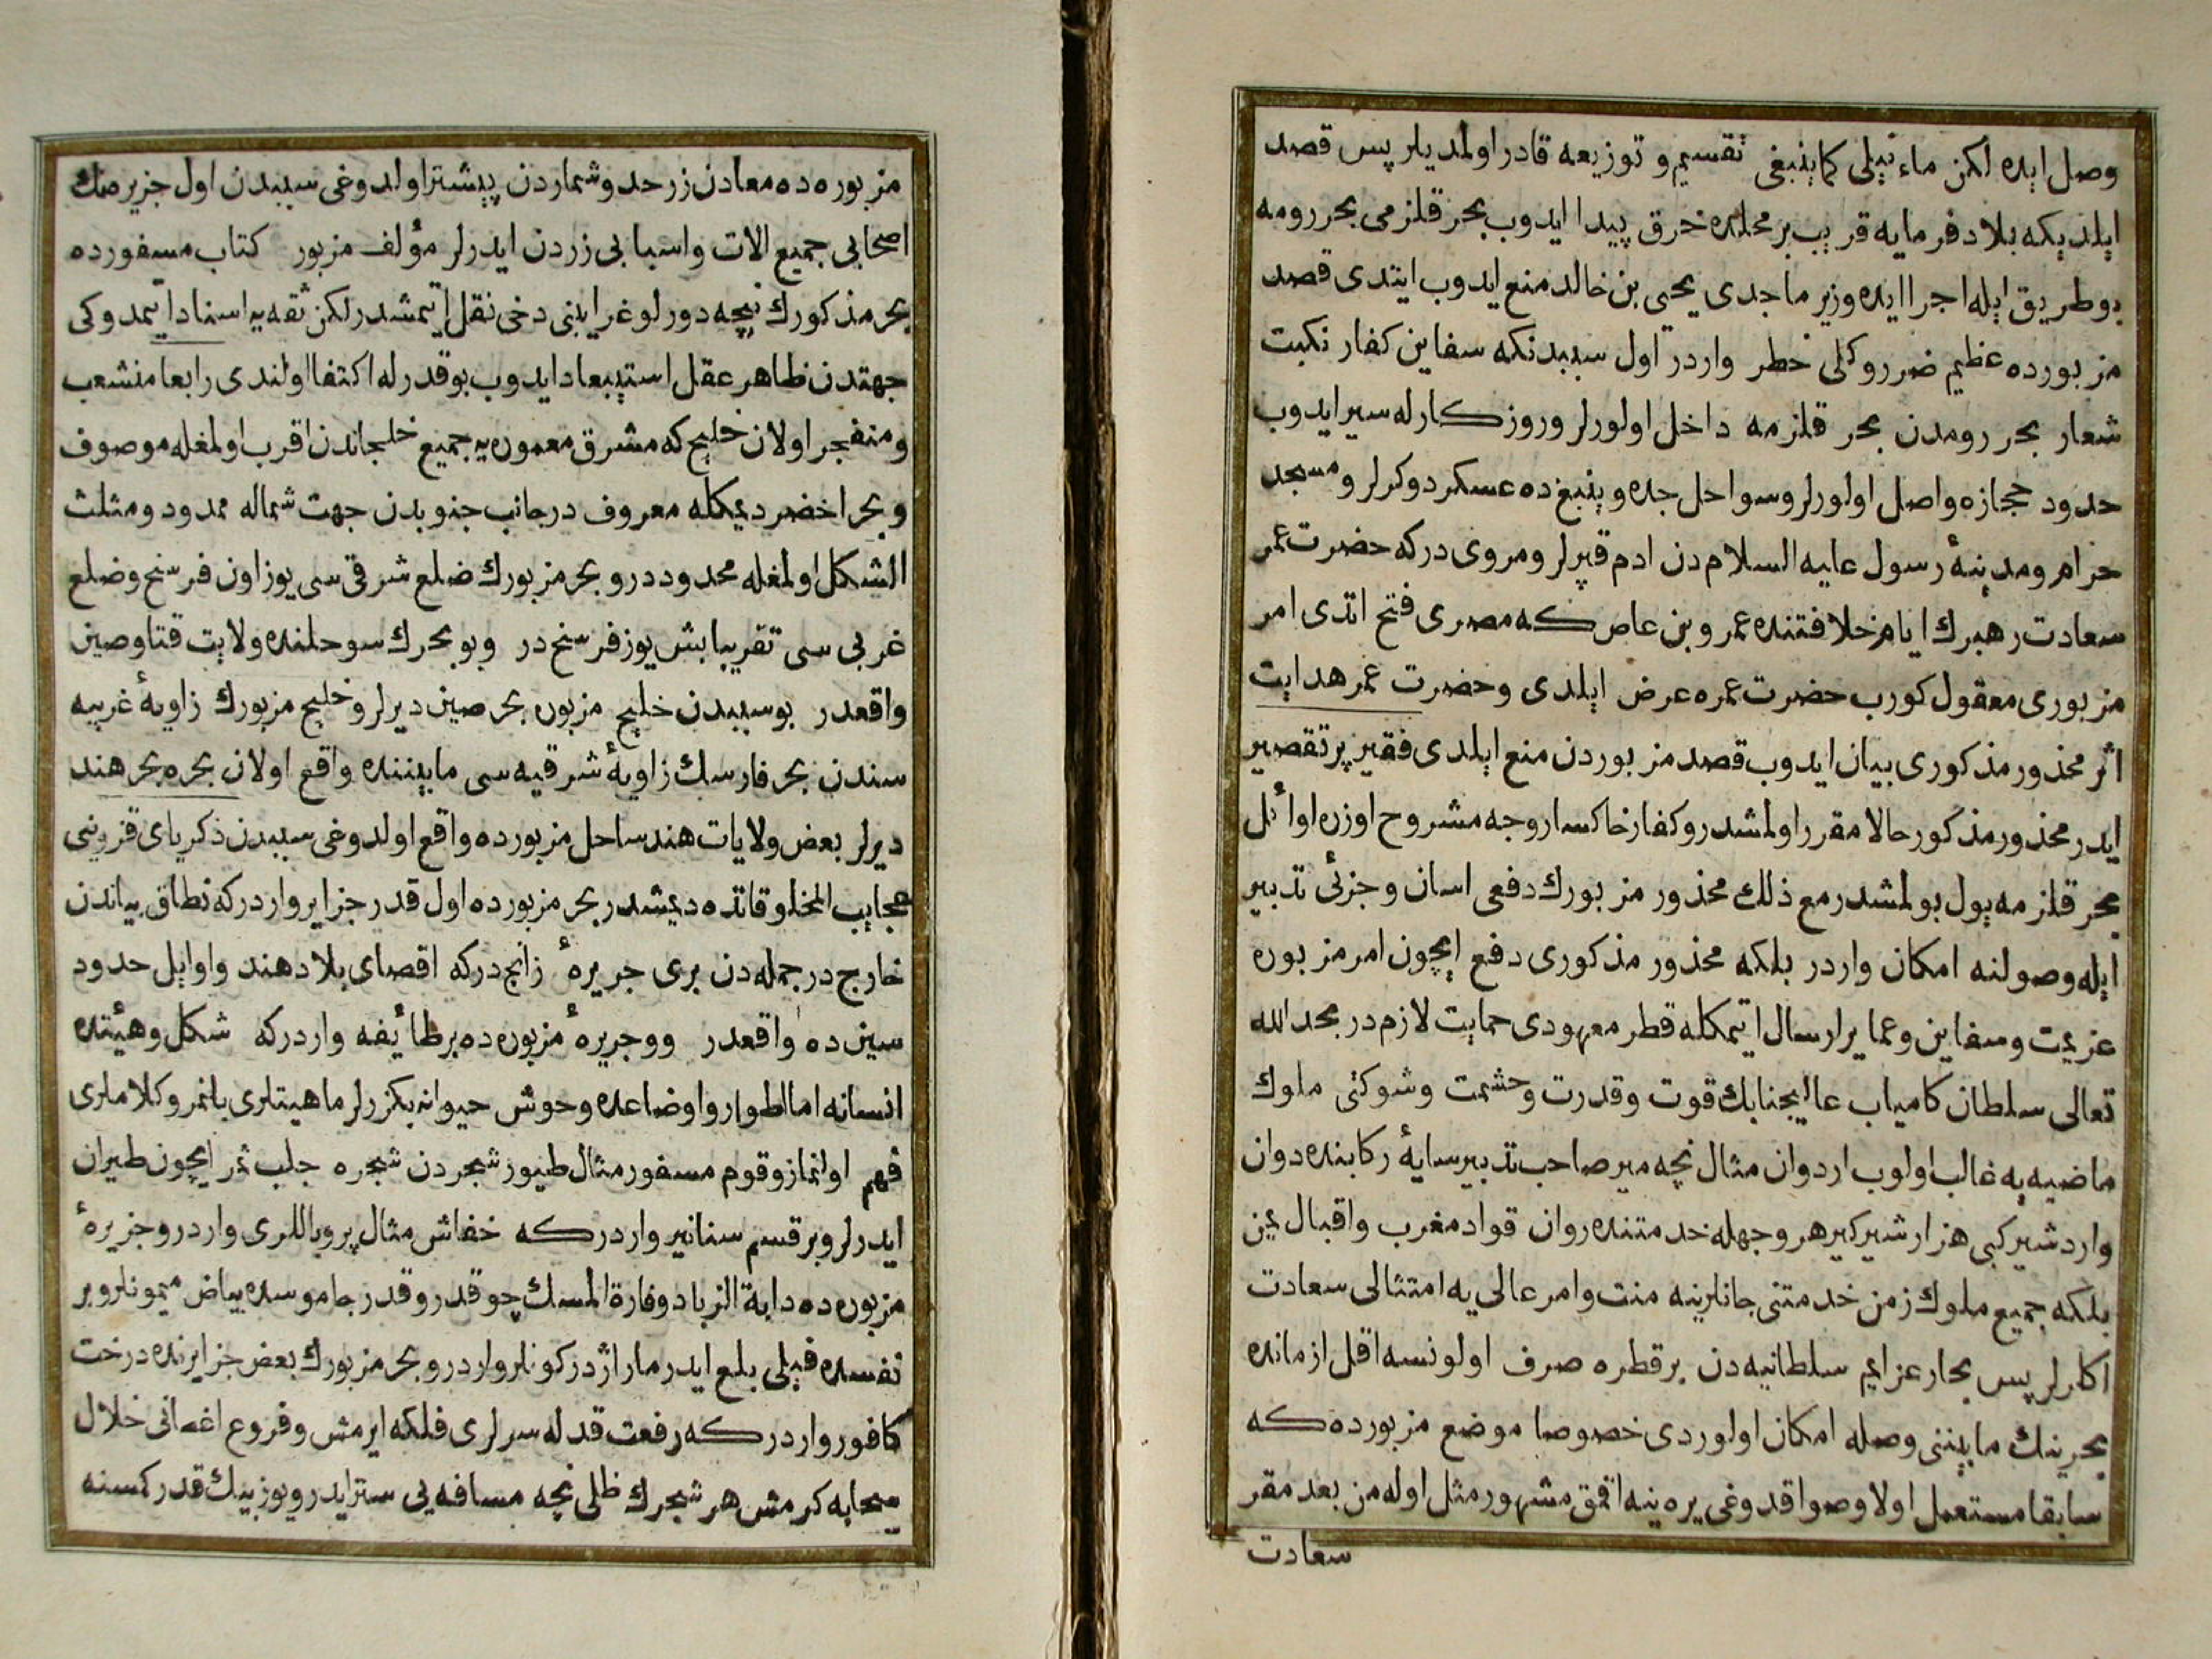 وصل ایده لکن ماء نیلی کما ینبغی تقسیم و توزیعه قادر اولمدیلر پس قصد
ایلدیکه بلاد فرمایه قریب بر محلده خرق پیدا ایدوب بحر قلزمی بحر رومه
بو طریق ایله اجرا ایده وزیر ماجدی یحیی بن خالد منع ایدوب ایتدی قصد
مزبورده عظیم ضرر و کلی خطر واردر اول سببدنکه سفاین کفار نکبت
شعار بحر رومدن بحر قلزمه داخل اولورلر و روزکارله سیر ایدوب
حدود حجازه واصل اولورلر و سواحل جده و ینبغ ده عسکر دوکرلر و مسجد
حرام و مدینهٔ رسول علیه السلام دن ادم قپرلر و مروی درکه حضرت عمر
سعادت رهبرك ایام خلافتنده عمرو بن عاص که مصری فتح اتدی امر
مزبوری معقول کورب حضرت عمره عرض ایلدی و حضرت عمر هدایت
اثر محذور مذکوری بیان ایدوب قصد مزبوردن منع ایلدی فقیر پر تقصیر
ایدر محذور مذکور حالا مقرر اولمشدر و کفار خاکسار وجه مشروح اوزره اوائل
بحر قلزمه یول بولمشدر مع ذلك محذور مزبورك دفعی اسان و جزئی تدبیر
ایله وصولنه امکان واردر بلکه محذور مذکوری دفع ایچون امر مزبوره
عزیمت و سفاین و عمایر ارسال ایتمکله قطر معهودی حمایت لازم در بحمد الله
تعالی سلطان کامیاب عالیجنابك قوت و قدرت و حشمت و شوکتی ملوك
ماضیه یه غالب اولوب اردوان مثال نچه میر صاحب تدبیر سایهٔ رکابنده دوان
و اردشیر کبی هزار شیر کیر هر وجهله خدمتنده روان قواد مغرب و اقبال یمن
بلکه جمیع ملوك زمن خدمتنی جانلرینه منت و امر عالی یه امتثالی سعادت
اکلرلر پس بحار عزایم سلطانیه دن بر قطره صرف اولونسه اقل ازمانده
بحرینك مابیننی وصله امکان اولوردی خصوصا موضع مزبورده که
سابقا مستعمل اولا و صو اقدوغی یره ینه اقمق مشهور مثل اوله من بعد مقر
سعادت
مزبوره ده معادن زر حد و شماردن بیشتر اولدوغی سببدن اول جزیره نك
اصحابی جمیع الات و اسبابی زردن ایدرلر مؤلف مزبور کتاب مسفورده
بحر مذکورك نیچه دورلو غرایبنی دخی نقل ایتمشدر لکن ثقه یه اسناد ایتمدوکی
جهتدن ظاهر عقل استبعاد ایدوب بو قدرله اکتفا اولندی رابعا منشعب
و منفجر اولان خلیج که مشرق معموره یه جمیع خلیجاندن اقرب اولمغله موصوف
و بحر اخضر دیمکله معروف در جانب جنوبدن جهت شماله ممدود و مثلث
الشکل اولمغله محدود در و بحر مزبورك ضلع شرقی سی یوز اون فرسنخ و ضلع
غربی سی تقریبا بش یوز فرسنخ در و بو بحرك سوحلنده ولایت قتا و صین
واقعدر بو سببدن خلیج مزبوره بحر صین دیرلر و خلیج مزبورك زاویهٔ غربیه
سندن بحر فارسك زاویهٔ شرقیه سی مابیننده واقع اولان بحره بحر هند
دیرلر بعض ولایات هند ساحل مزبورده واقع اولدوغی سببدن ذکریای قزوینی
عجایب المخلوقاتده دیمشدر بحر مزبورده اول قدر جزایر واردر که نطاق بیاندن
خارج در جمله دن بری جزیرهٔ زانج درکه اقصای بلاد هند و اوایل حدود
سین ده واقعدر و و جزیرهٔ مزبوره ده بر طائیفه واردر که شکل و هیئتده
انسانه اما اطوار و اوضاعده وحوش حیوانه بکزرلر ماهیتلری بلنمز و کلاملری
فهم اولنماز و قوم مسفور مثال طیور شجردن شجره جلب ثمر ایچون طیران
ایدرلر و بر قسم سنانیر واردر که خفاش مثال پر و باللری واردر و جزیرهٔ
مزبوره ده دابة الزباد و فارة المسك چوقدر و قدر جاموسده بیاض میمونلر و بر
نفسده فیلی بلع ایدر مار اژدر کونلر واردر و بحر مزبورك بعض جزایرنده درخت
کافور واردر که رفعت قدله سرلری فلکه ایرمش و فروع اغصانی خلال
سحابه کرمش هر شجرك ظلی نچه مسافه یی ستر ایدر و یوز بیك قدر کسنه